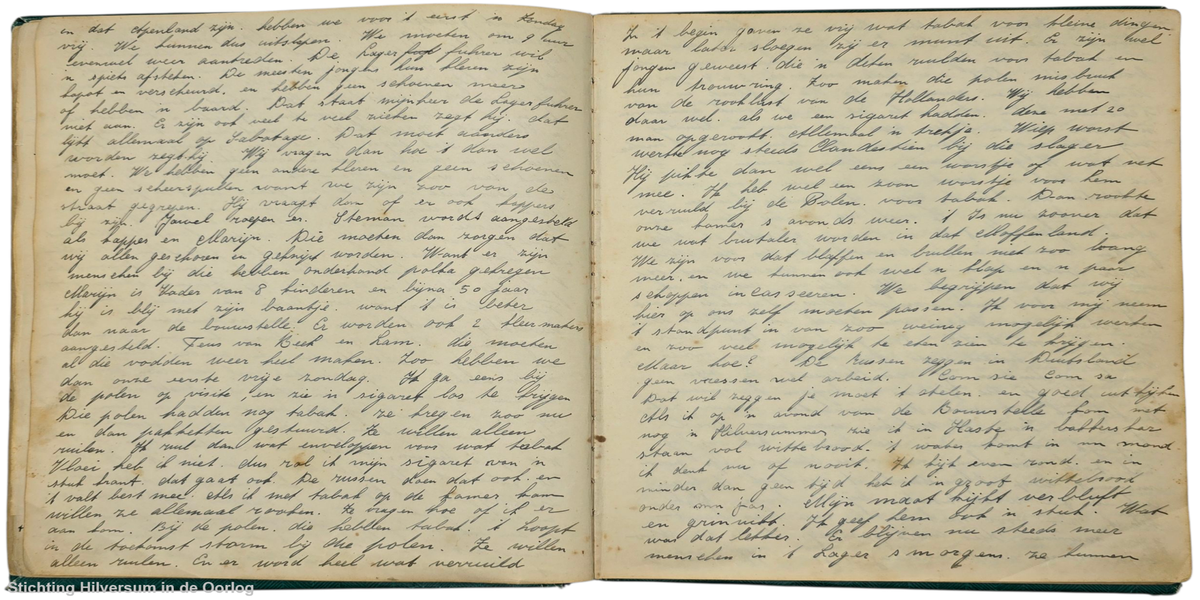 en dat Apenland zijn. hebben we voor 't eerst in Zondag
vrij. We kunnen dus uitslapen. We moeten om 9 uur
evenwel weer aantreden. De Lager fuhrer wil
'n spiets afsteken. De meesten jongens hun kleren zijn
kapot en verscheurd. en hebben geen schoenen meer
of hebben 'n baard. Dat staat mijnheer de Lagerfuhrer
niet aan. Er zijn ook veel te veel zieken zegt hij. dat
lijkt allemaal op Sabotage. Dat moet anders
worden zegt hij. Wij vragen dan hoe 't dan wel
moet. We hebben geen andere kleren en geen schoenen
en geen scheerspullen want we zijn zoo van de
straat gegrepen. Hij vraagt dan of er ook kappers
bij zijn. Jawel roepen er. Steman wordt aangesteld
als kapper en Marijn. Die moeten dan zorgen dat
wij allen geschoren en geknipt worden. Want er zijn
menschen bij die hebben onderhand polka gekregen
Marijn is Vader van 8 kinderen en bijna 50 jaar
hij is blij met zijn baantje. want 't is beter
dan naar de bouwstelle. Er worden ook 2 kleermakers
aangesteld. Teus van Beek en Lam. die moeten
al die vodden weer heel maken. Zoo hebben we
dan onze eerste vrije zondag. Ik ga eens bij
de polen op visite en zie 'n sigaret los te krijgen
Die polen hadden nog tabak. ze kregen zoo nu
en dan pakketten gestuurd. Ze willen alleen
ruilen. Ik ruil dan wat enveloppen voor wat tabak
Vloei heb ik niet. dus rol ik mijn sigaret van 'n
stuk krant. dat gaat ook. De russen doen dat ook. en
't valt best mee. Als ik met tabak op de kamer kom
willen ze allemaal rooken. Ze vragen hoe of ik er
aan kom. Bij de polen. die hebben tabak. 't Loopt
in de toekomst storm bij die polen. Ze willen
alleen ruilen. En er word heel wat verruild
In 't begin gaven ze vrij wat tabak voor kleine dingen
maar later sloegen zij er munt uit. Er zijn wel
jongen geweest. die 'n deken ruilden voor tabak en
hun trouwring. Zoo maken die polen misbruik
van de rooklust van de Hollanders. Wij hebben
daar wel. als we een sigaret hadden. deze met 20
man opgerookt. Allemaal 'n trekje. Wiep worst
werkte nog steeds Clandestien bij die slager
Hij pikte dan wel eens een worstje of wat vet
mee. Ik heb wel een zoon worstje voor hem
verruild bij de Polen. voor tabak. Dan rookte
onze kamer s avonds weer. 't Is nu zoover dat
we wat brutaler worden in dat Moffenland.
We zijn voor dat blaffen en brullen niet zoo bang
meer. en we kunnen ook wel 'n klap en 'n paar
schoppen incasseeren. We begrijpen dat wij
hier op ons zelf moeten passen. Ik voor mij neem
't standpunt in van zoo weinig mogelijk werken
en zoo veel mogelijk te eten zien te krijgen.
Maar hoe? De russen zeggen in Duitsland
geen vressen wel arbeid. Com sie Com sa
Dat wil zeggen je moet 't stelen. en goed uitkijken
Als ik op 'n avond van de Bouwstelle kom met
nog 'n Hilversummer zie ik in Haste 'n bakkerskar
staan vol wittebrood. 't water komt in mn mond.
ik denk nu of nooit. Ik kijk even rond. en in
minder dan geen tijd heb ik 'n groot wittebrood
onder mn jas. Mijn maat kijkt verbluft
en grinnikt. Ik geef hem ook 'n stuk. Wat
was dat lekker. Er blijven nu steeds meer
menschen in 't Lager s morgens. ze kunnen
Stichting Hilversum in de Oorlog